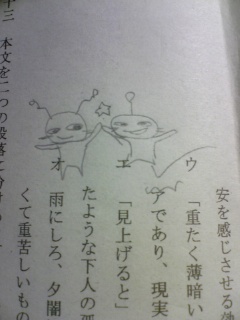 安を感じさせる
ウ「重たく薄暗い
アであり、現実
エ「見上げると」
たような下人の
オ 雨にしろ、夕闇
くて重苦しいもの
十三 本文を二つの段落に分け